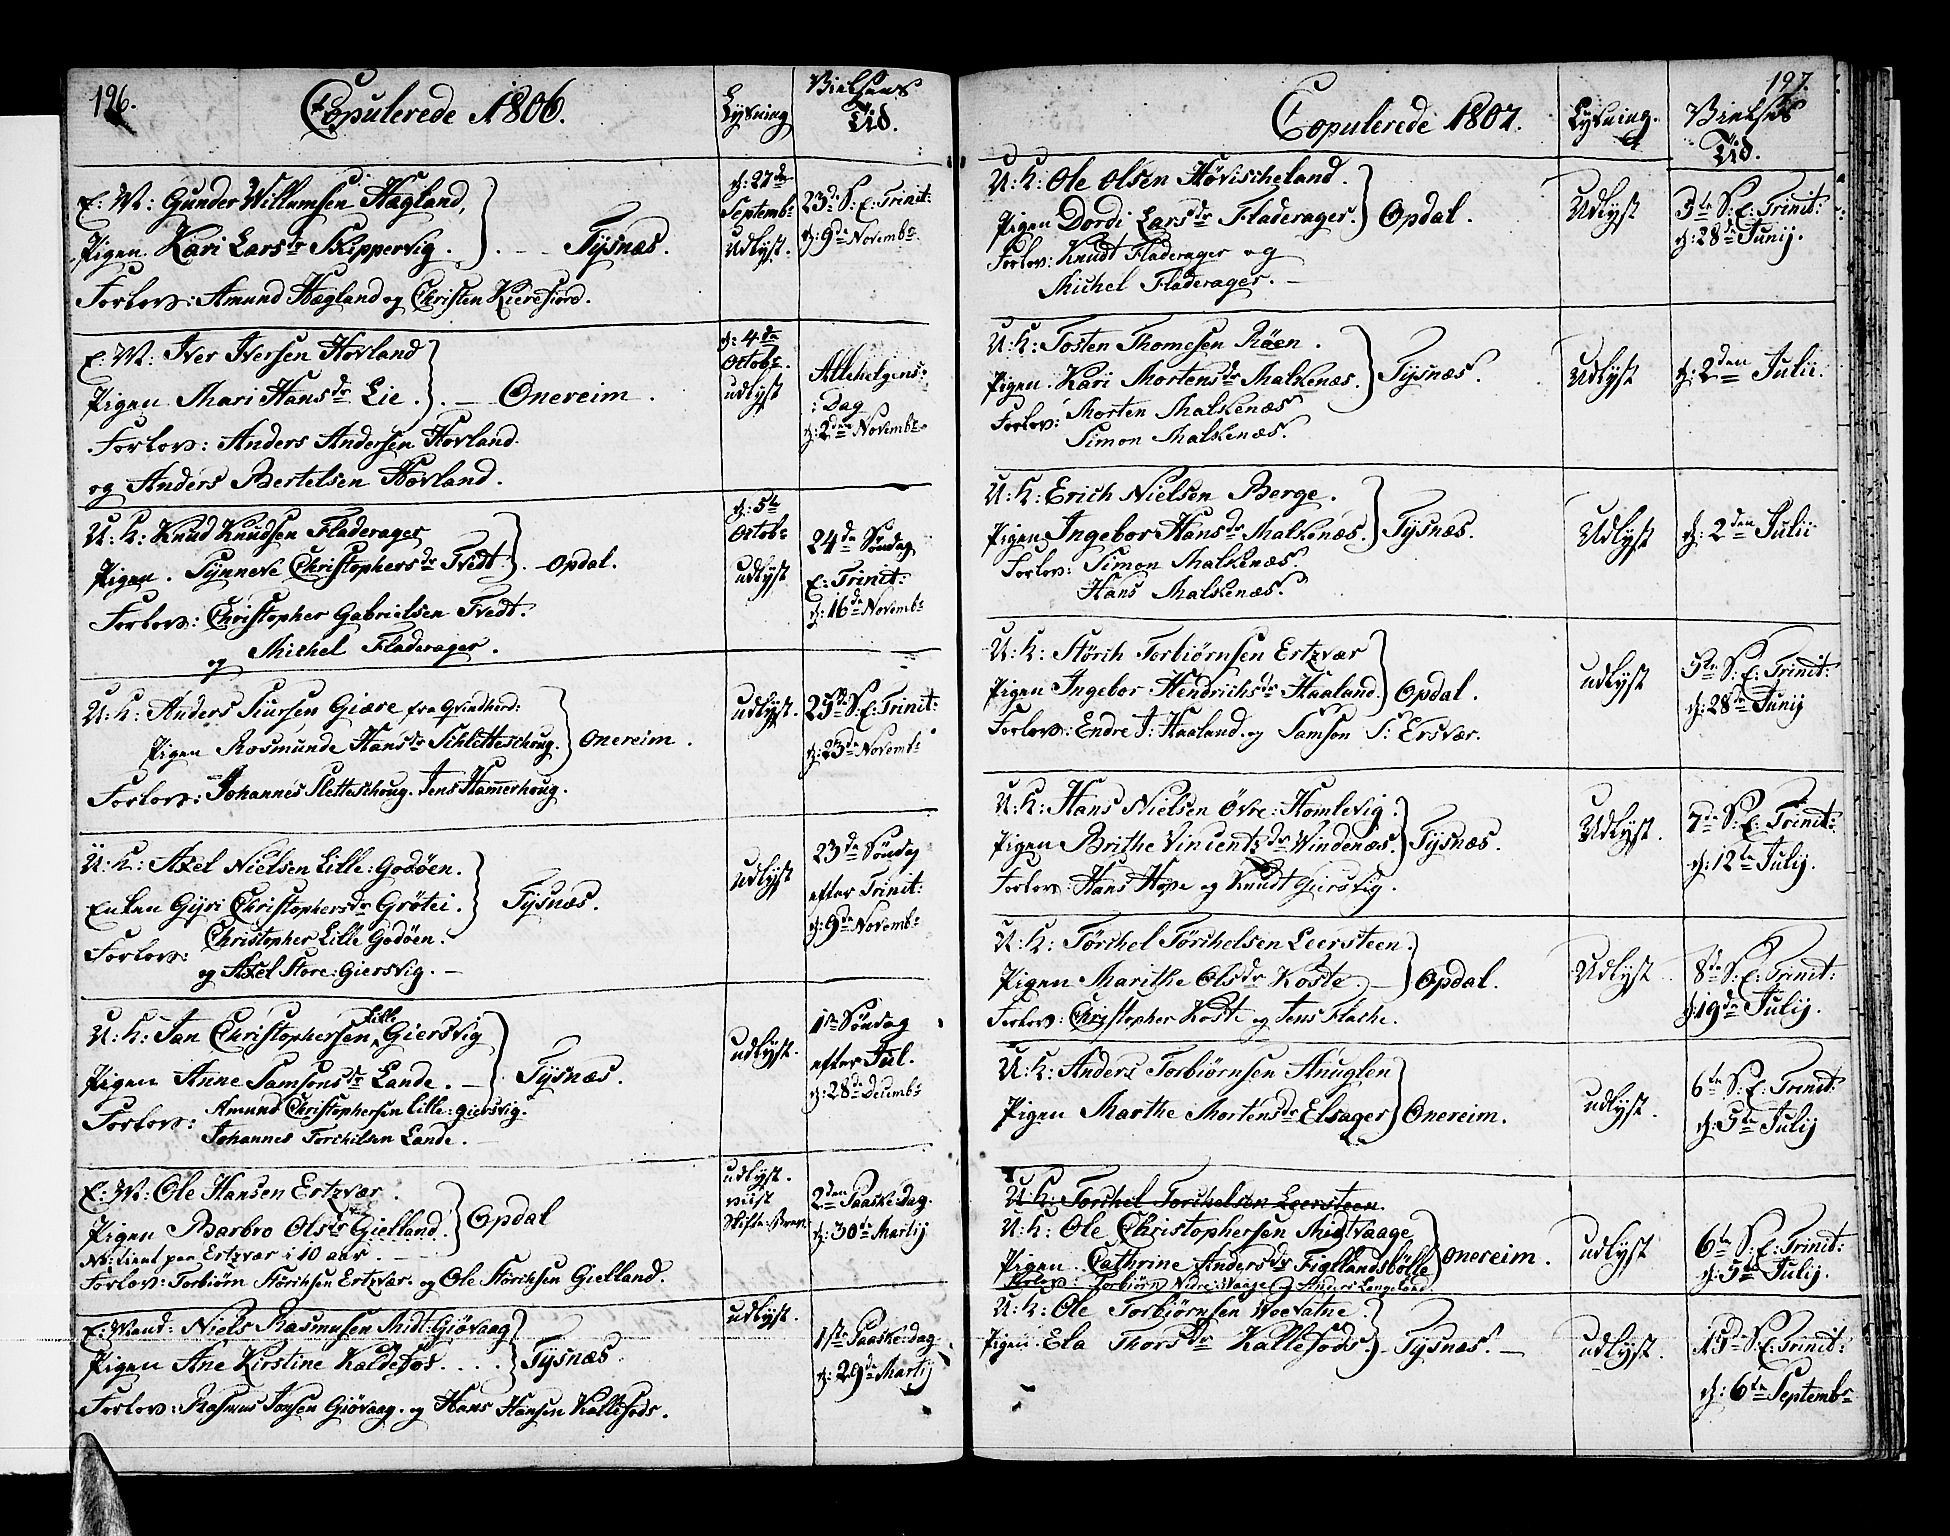 196.
Copulerede 1806.
Lysning
Vielsens
Tid.
E: M: Gunder Willumsen Hægland,
Pigen Kari Larsdr Skippervig. Tysnæs.
Forlov: Amund Hægland og Christen Kierefiord.
d: 27de
Septembr
Udlyst.
23de S: E: Trinit:
d: 9de Novembr.
E: M: Iver Iversen Hovland
Pigen Mari Hansdr Lie. Onereim.
Forlov: Anders Andersen Hovland.
og Anders Bertelsen Hovland.
d: 4de
Octobr.
udlyst
Allehelgens:
Dag
d: 2den Novembr.
U: K: Knud Knudsen Fladerager
Pigen. Synneve Christophersdr Tvedt. Opdal.
Forlov: Christopher Gabrielsen Tvedt.
og Michel Fladerager.
d: 5te
Octobr
udlyst
24de Søndag
E: Trinit:
d: 16de Novembr
U: K: Anders Siursen Giære fra Qvindherd:
Pigen Rosmunde Hansdr Schletteschoug. Onereim.
Forlov: Johannes Sletteschoug. Jens Hamerhoug.
udlyst.
25de S: E: Trinit:
d: 23de Novembr
U: K: Axel Nielsen Lille: Godøen.
Enken Gyri Christophersdr Grøtei. Tysnæs.
Forlov: Christopher Lille Godøen.
og Axel Store: Giersvig.
udlyst
23de Søndag
efter Trinit:
d: 9de Novembr
U: K: Jan Christophersen Lille Giersvig
Pigen Anne Samsonsdr Lande. Tysnæs.
Forlov: Amund Christophersen Lille: giersvig.
Johannes Torchilsen Lande.
udlyst.
1ste Søndag
efter Jul.
d: 28de Decembr
E: M: Ole Hansen Ertzvær.
Pigen Barbro Olsdr Gielland. Opdal
Nb: tient paa Ertzvær i 10 aar.
Forlov: Torbiørn Størchsen Ertzvær. og Ole Størchsen Gielland.
udlyst.
viist
Skifte: Brev.
2den Paaske: dag.
d: 30te Martij
E: Mand: Niels Rasmusen Midt: Giøvaag
Pigen Ane Kirstine Kaldefos. Tysnæs.
Forlov: Rasmus Jansen Giøvaag. og Hans Hansen Kallefods.
udlyst.
1ste Paaske: dag
d: 29de Martij
197.
Copulerede 1807.
Lysning.
Vielses
Tid.
U: K: Ole Olsen Høvischeland.
Pigen Dordi Larsdr Fladerager. Opdal.
Forlov: Knudt Fladerager og
Michel Fladerager.
Udlyst
5te S: E: Trinit:
d: 28de Junij.
U: K: Tosten Thomesen Røen.
Pigen. Kari Mortensdr Malkenæs. Tysnæs.
Forlov: Morten Malkenæs
Simon Malkenæs.
Udlyst
d: 2den Julii.
U: K: Erich Nielsen Berge.
Pigen Ingebor Hansdr Malkenæs. Tysnæs.
Forlov: Simon Malkenæs.
Hans Malkenæs.
Udlyst
d: 2den Julii
U: K: Störch Torbiørnsen Ertzvær
Pigen Ingebor Hendrichsdr Haaland. Opdal.
Forlov: Endre J: Haaland. og Samson S: Ersvær.
udlyst
5te S: E: Trinit:
d: 28de Junij
U: K: Hans Nielsen Övre: Homlevig.
Pigen Brithe Vincentzdr Windenæs. Tysnæs.
Forlov: Hans Hope og Knudt Giersvig.
Udlyst.
7de S: E: Trinit:
d: 12te Julij.
U: K: Törchel Törchelsen Leersteen.
Pigen Marithe Olsdr Koste. Opdal.
Forlov: Christopher Koste og Jens Flache.
Udlyst
8de S: E: Trinit:
d: 19de Julij.
U: K: Anders Torbiørnsen Anuglen
Pigen Marthe Mortensdr Elsager Onereim.
udlyst.
6te S: E: Trinit:
d: 5te Julij
U: K: Torchel Torchelsen Leersteen.
U: K: Ole Christophersen Midtvaage
Pigen. Cathrine Andersdr Figllandsbölle Onereim.
Forlov: Torbiørn Nedre: Waage og Anders Langeland.
udlyst
6te S: E: Trinit:
d: 5te Julij.
U: K: Ole Torbiørnsen Woevatne.
Pigen. Ela Thorsdr Kallefods. Tysnæs.
udlyst.
15de S: E: Trinit:
d: 6te Septembr